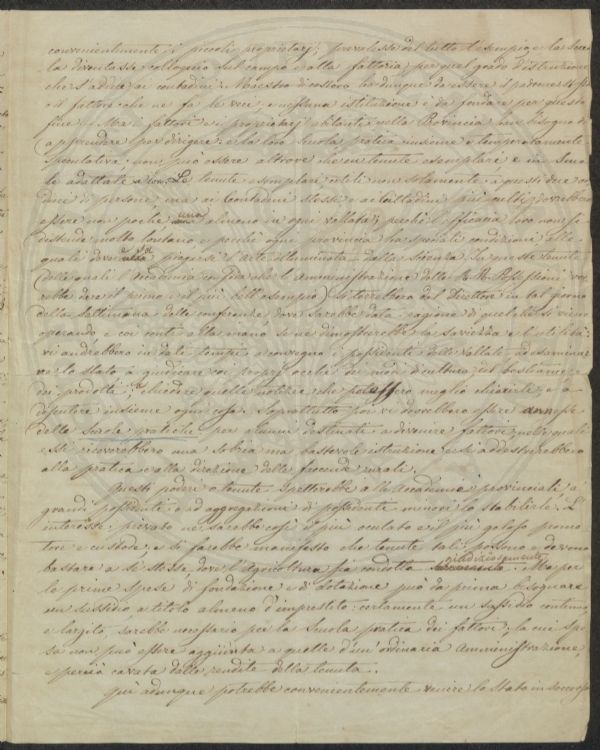 convenientemente i piccoli proprietarj; prevalesse del tutto l'esempio, e la Scuo-
la diventasse colloquio sul campo e alla fattoria, per quel grado d'istruzione
che s'addice ai contadini. Maestro di costoro ha dunque da essere il padrone stesso
o il fattore che ne fa le veci, e nessuna istituzione è da fondare per questo
fine. Ma i fattori e i proprietarj abitanti nella Provincia han bisogno di
apprendere per dirigere; e la loro Scuola pratica insieme e temperatamente
speculativa, non può essere altrove che in tenute esemplari e in Scuo-
le adattate a loro. Le tenute esemplari utili non solamente a questi due or-
dini di persone, ma ai Contadini stessi e ai Cittadini più culti, dovrebbero
essere non poche una almeno in ogni vallata; perchè l'efficacia loro non si
distende molto lontano, e perchè ogni provincia ha speciali condizioni alle
quali deve piegarsi l'Arte illuminata dalla Scienza. In queste tenute
(delle quali l'Accademia confida che l'Amministrazione delle RR. Possessioni vor-
rebbe dare il primo e il più bell'esempio) si terrebbero dal Direttore in tal giorno
della settimana delle conferenze, dove sarebbe data ragione di quel che si viene
operando, e coi conti alla mano se ne dimostrerebbe la saviezza e l'utilità:
vi andrebbero in dati tempi a convegno i possidenti delle Vallate, ad esaminar-
ve lo stato, a giudicare coi proprj occhi dei modi di cultura, del bestiame e
dei prodotti, a chiedere quelle notizie che potessero meglio chiarirli, e a
disputare insieme ogni cosa. Soprattutto poi vi dovrebbero essere annesse
delle Scuole pratiche per alunni destinati a divenire fattori, nelle quali
essi riceverebbero una sobria ma bastevole istruzione, e si addestrerebbero
alla pratica e alla direzione delle faccende rurali.
Questi poderi o tenute spetterebbe alle Accademie provinciali, a
grandi possidenti, o ad aggregazioni di possidenti minori lo stabilirle. L'
interesse privato ne sarebbe così il più oculato e il più geloso promo-
tore e custode, e si farebbe manifesto che tenute tali possono e devono
bastare a sè stesse, dove l'Agricoltura sia condotta giudiziosamente. Ma per
le prime spese di fondazione e di dotazione può da prima bisognare
un sussidio a titolo almeno d'imprestito: certamente un sussidio continuo
e largito, sarebbe necessario per la Scuola pratica dei fattori; la cui spe-
sa non può essere aggiunta a quelle d'un ordinaria Amministrazione,
e perciò cavata dalle rendite della tenuta.
Quì adunque potrebbe convenientemente venire lo Stato in soccorso